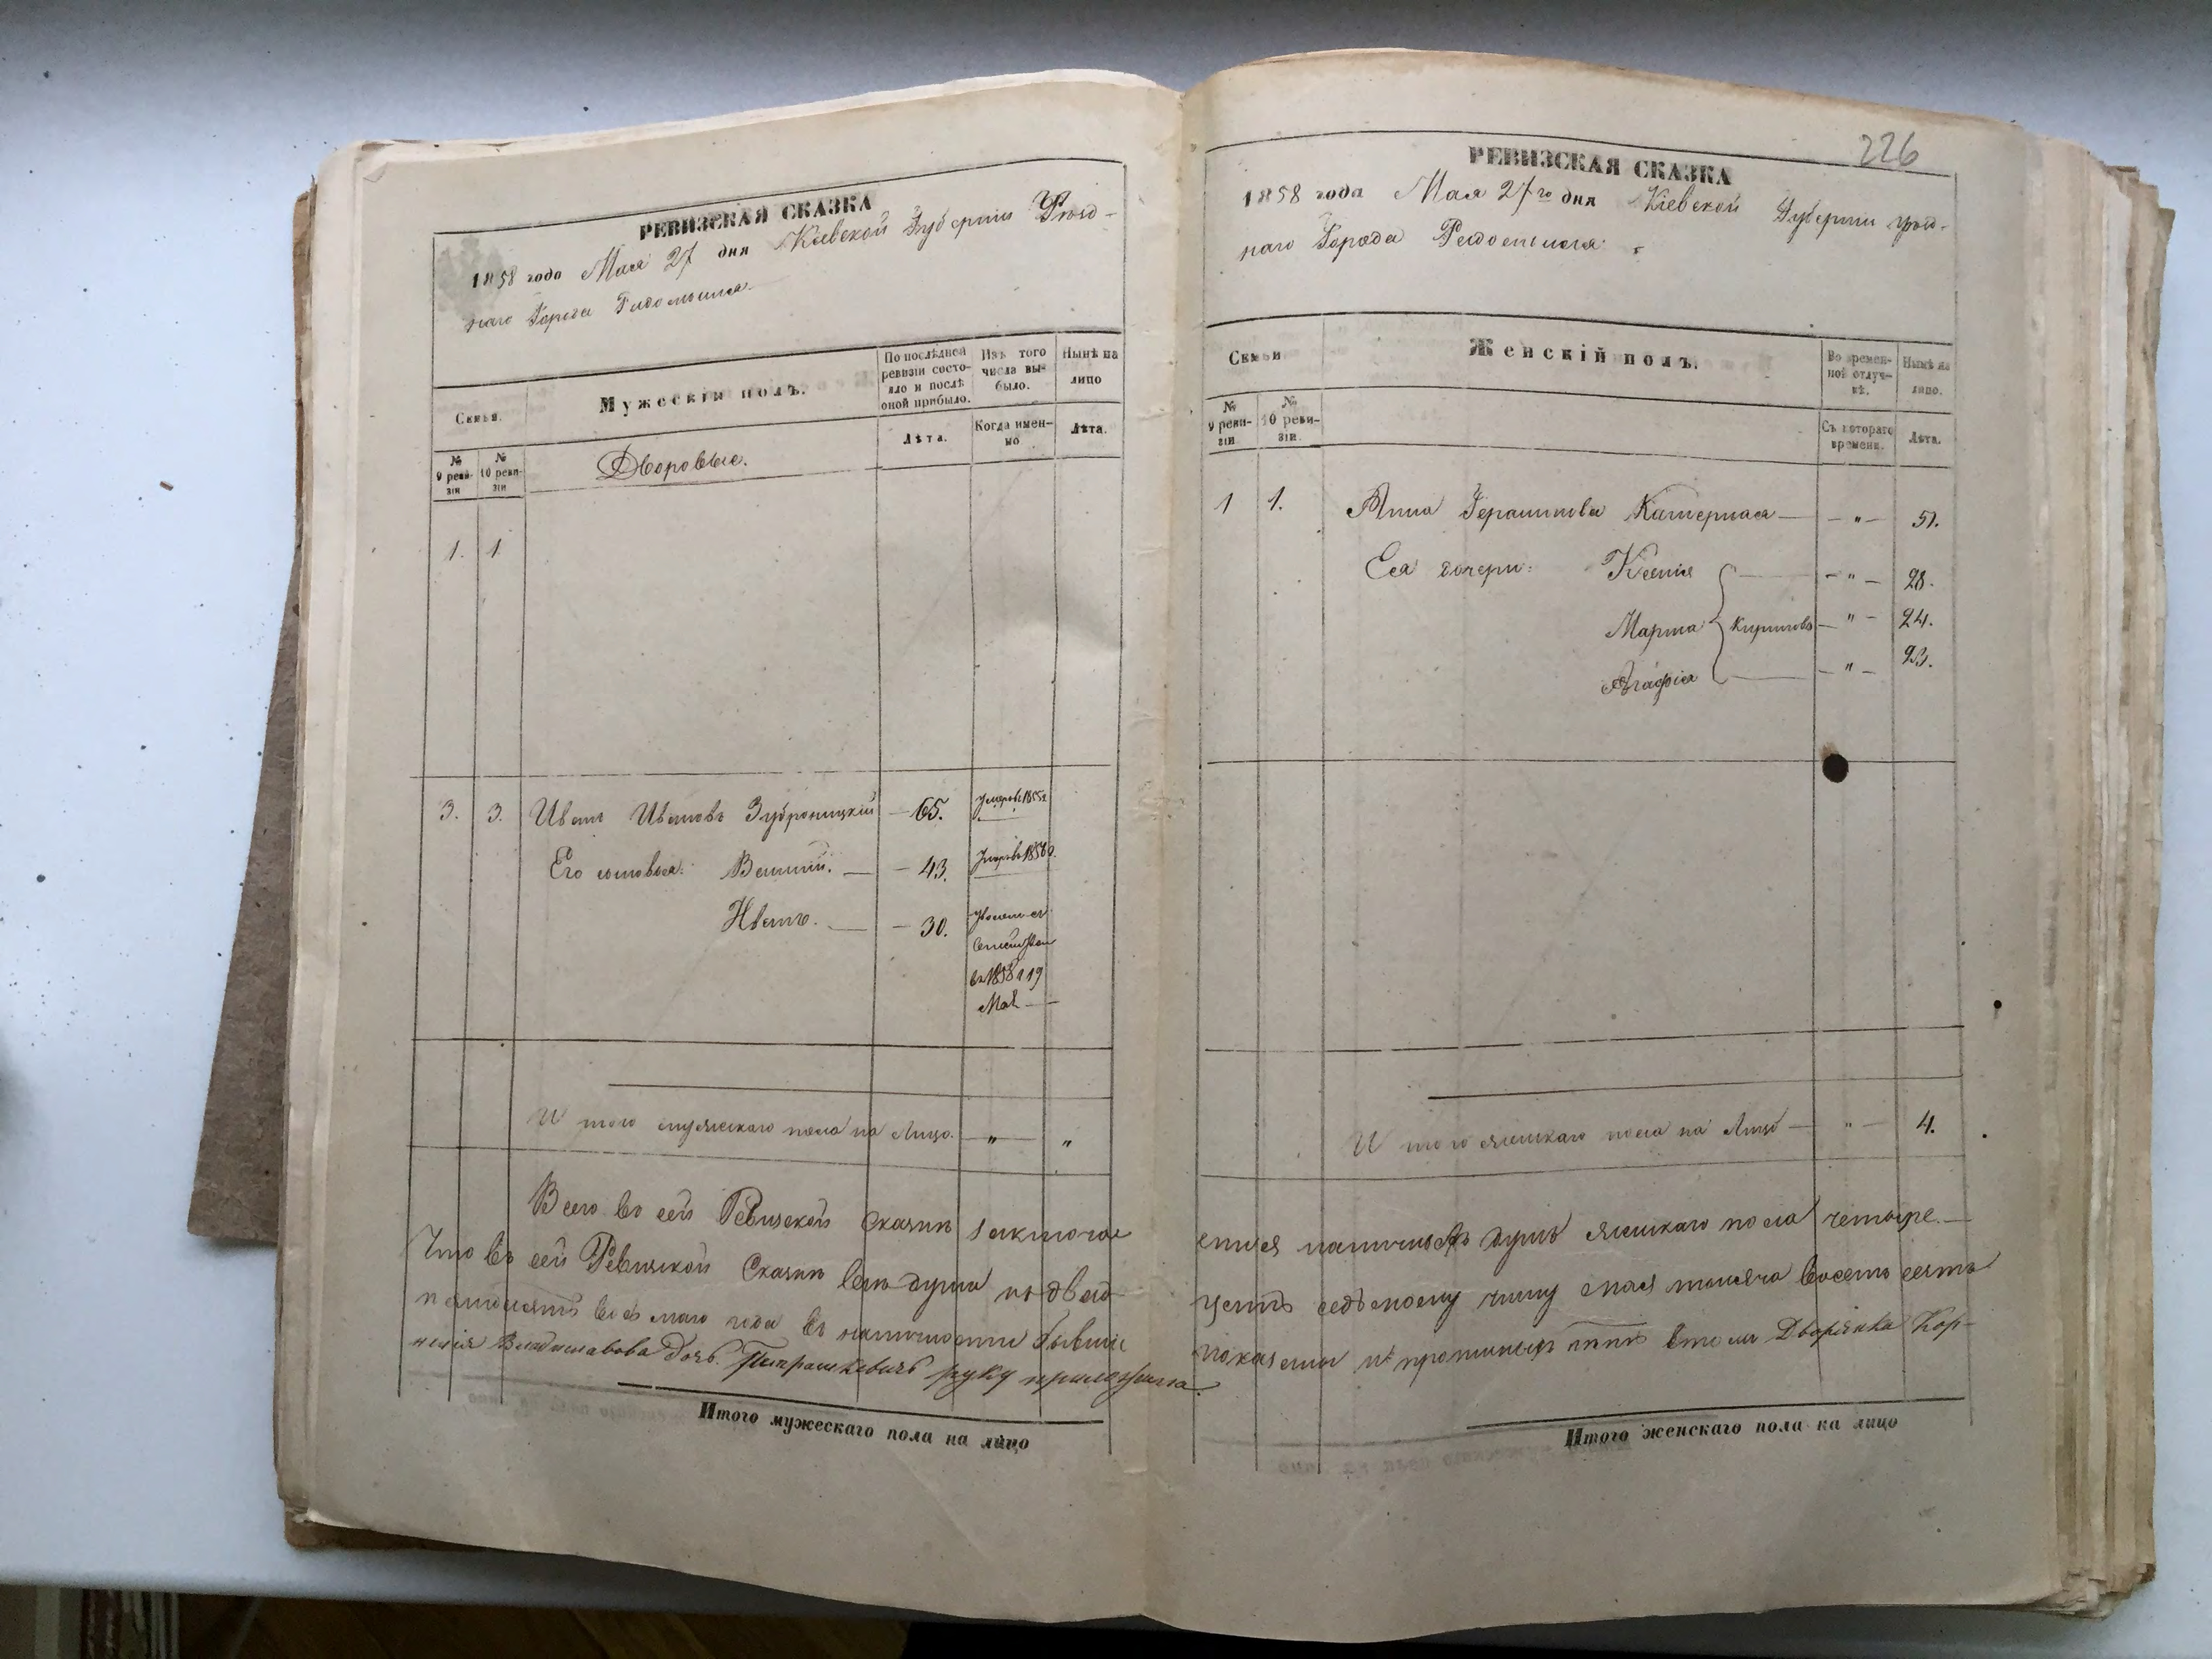 РЕВИЗСКАЯ СКАЗКА
1858 года Мая 27 дня Кіевской Губерніи Уѣзд-
наго Города Радомысля
Семьи.
Мужескій полъ.
По послѣдней ревизіи состояло и послѣ оной прибыло.
Изъ того числа выбыло.
Нынѣ на лицо
№ 9 ревизіи
№ 10 ревизіи
Дворовые.
Лѣта.
Когда именно
Лѣта.
1. 1
3. 3. Иванъ Ивановъ Зуброницкій — 65. умеръ 1855г.
Его сыновья: Василій. — 43. Умеръ 1856г.
Иванъ. — 30.
въ 1858 г 19
Мая —
И того мужескаго пола на Лицо. — „ — „
Всего во сей Ревизской Сказкѣ заключае
Что въ сей Ревизской Сказкѣ всѣ души по двад-
пятдесятъ восьмаго года въ наличности бывшіе
нелія Владиславова дочь Петрашкевичъ руку приложила.
Итого мужескаго пола на лицо
226
РЕВИЗСКАЯ СКАЗКА
1858 года Мая 27го дня Кіевской Губерніи уѣзд-
наго Города Радомысля.
Семьи
Женскій полъ.
Во временной отлучкѣ.
Нынѣ на лицо.
№ 9 ревизіи
№ 10 ревизіи.
Съ котораго времени.
Лѣта.
1 1. Анна Герасимова Катерная — — „ — 51.
Ея дочери: Ксенія — — „ — 28.
Марта Кирилов — „ — 24.
Агафія — — „ — 23.
И того женскаго пола на Лицо — „ — 4.
ется наличныхъ душъ женскаго пола четыре. —
цать седьмому числу Мая тысяча восемь сотъ
показаны и пропущенныхъ нѣтъ въ томъ Дворянка Кор-
Итого женскаго пола на лицо